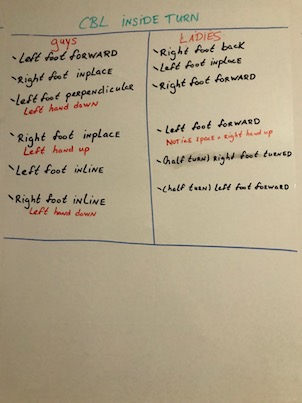 CBL INSIDE TURN
guys
Left foot FORWARD
Right foot inplace
Left foot perpendicular
Left hand down
Right foot inplace
Left hand up
Left foot inline
Right foot inline
Left hand down
LADIES
Right foot back
Left foot inplace
Right foot forward
Left foot forward
Notice space + right hand up
(half turn) right foot turned
(half turn) left foot forward